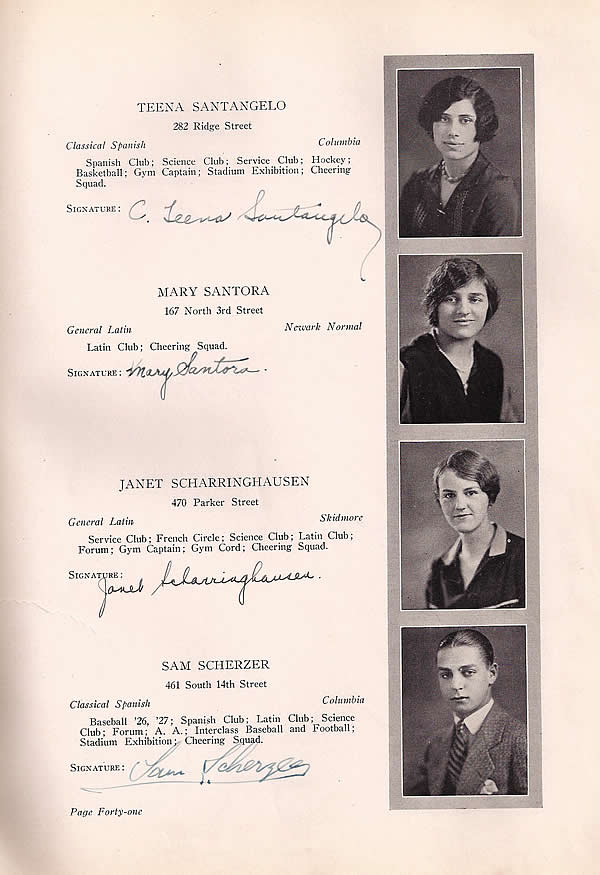 TEENA SANTANGELO
282 Ridge Street
Classical Spanish Columbia
Spanish Club; Science Club; Service Club; Hockey;
Basketball; Gym Captain; Stadium Exhibition; Cheering
Squad.
SIGNATURE: C. Teena Santangelo
MARY SANTORA
167 North 3rd Street
General Latin Newark Normal
Latin Club; Cheering Squad.
SIGNATURE: Mary Santora.
JANET SCHARRINGHAUSEN
470 Parker Street
General Latin Skidmore
Service Club; French Circle; Science Club; Latin Club;
Forum; Gym Captain; Gym Cord; Cheering Squad.
SIGNATURE: Janet Scharringhausen.
SAM SCHERZER
461 South 14th Street
Classical Spanish Columbia
Baseball '26, '27; Spanish Club; Latin Club; Science
Club; Forum; A. A.; Interclass Baseball and Football;
Stadium Exhibition; Cheering Squad.
SIGNATURE: Sam Scherzer
Page Forty-one